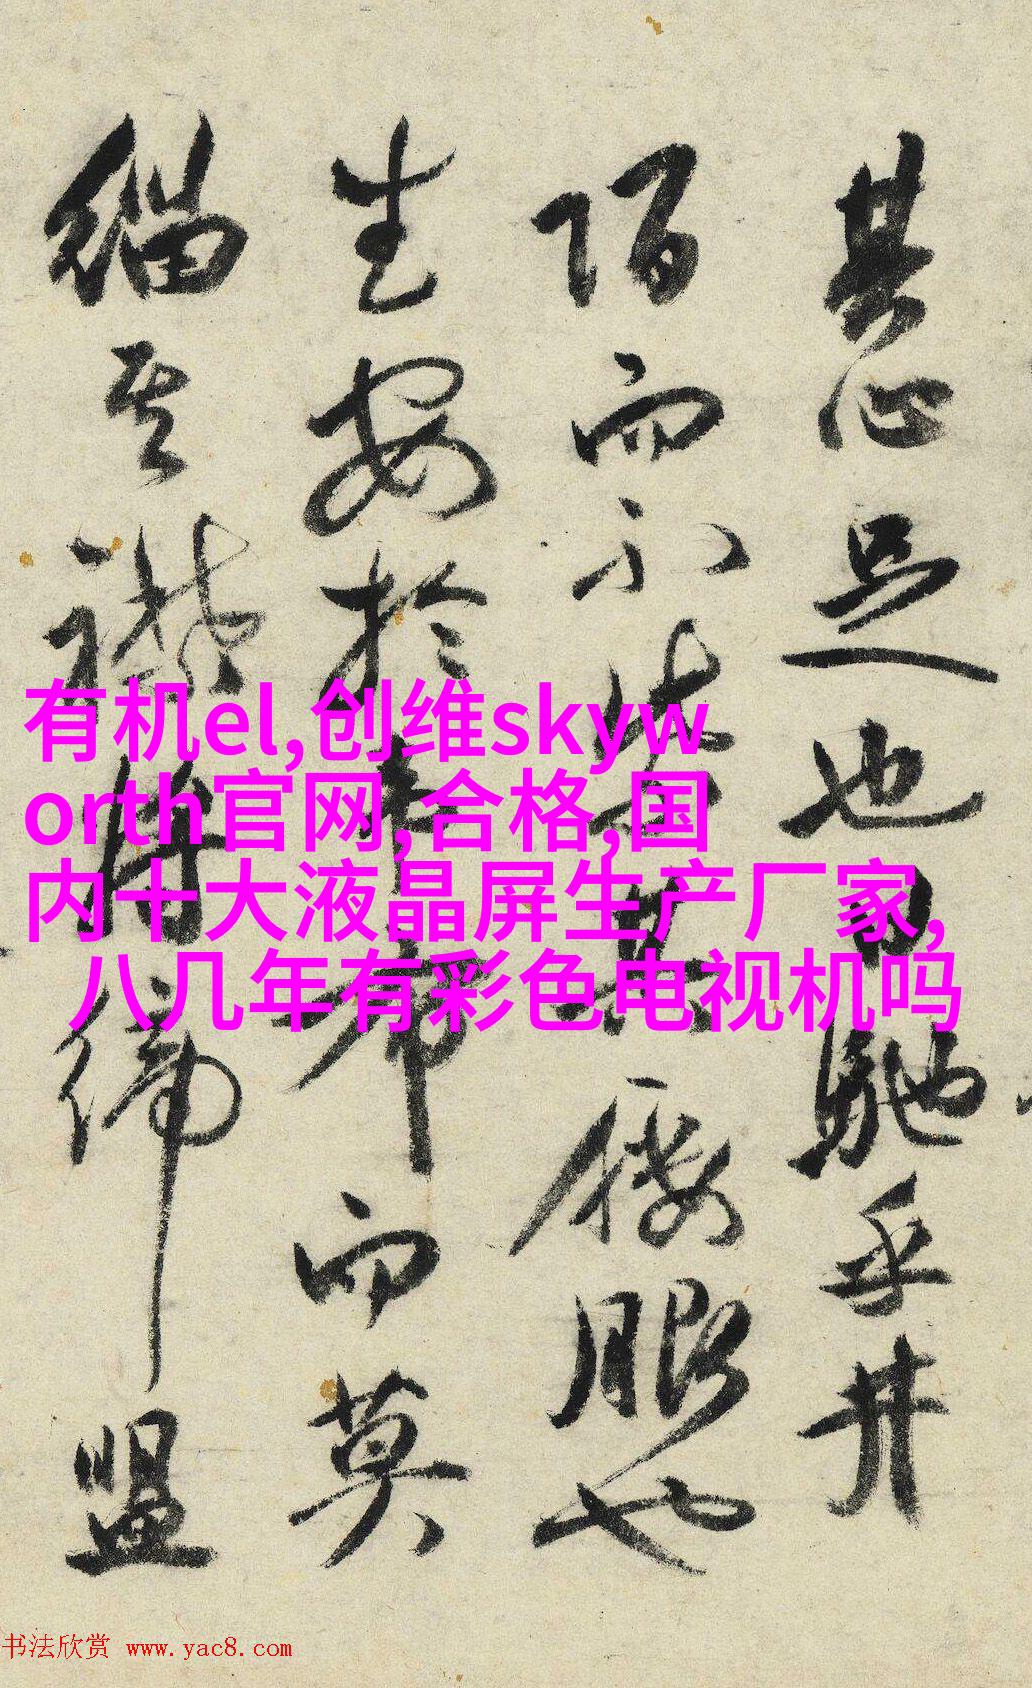 其心足也日馳乎井
陌而不其服也
生安於市而莫
緇其將歸盟
有机el,创维skyw
orth官网,合格,国
内十大液晶屏生产厂家,
八几年有彩色电视机吗
书法欣赏 www.yac8.com